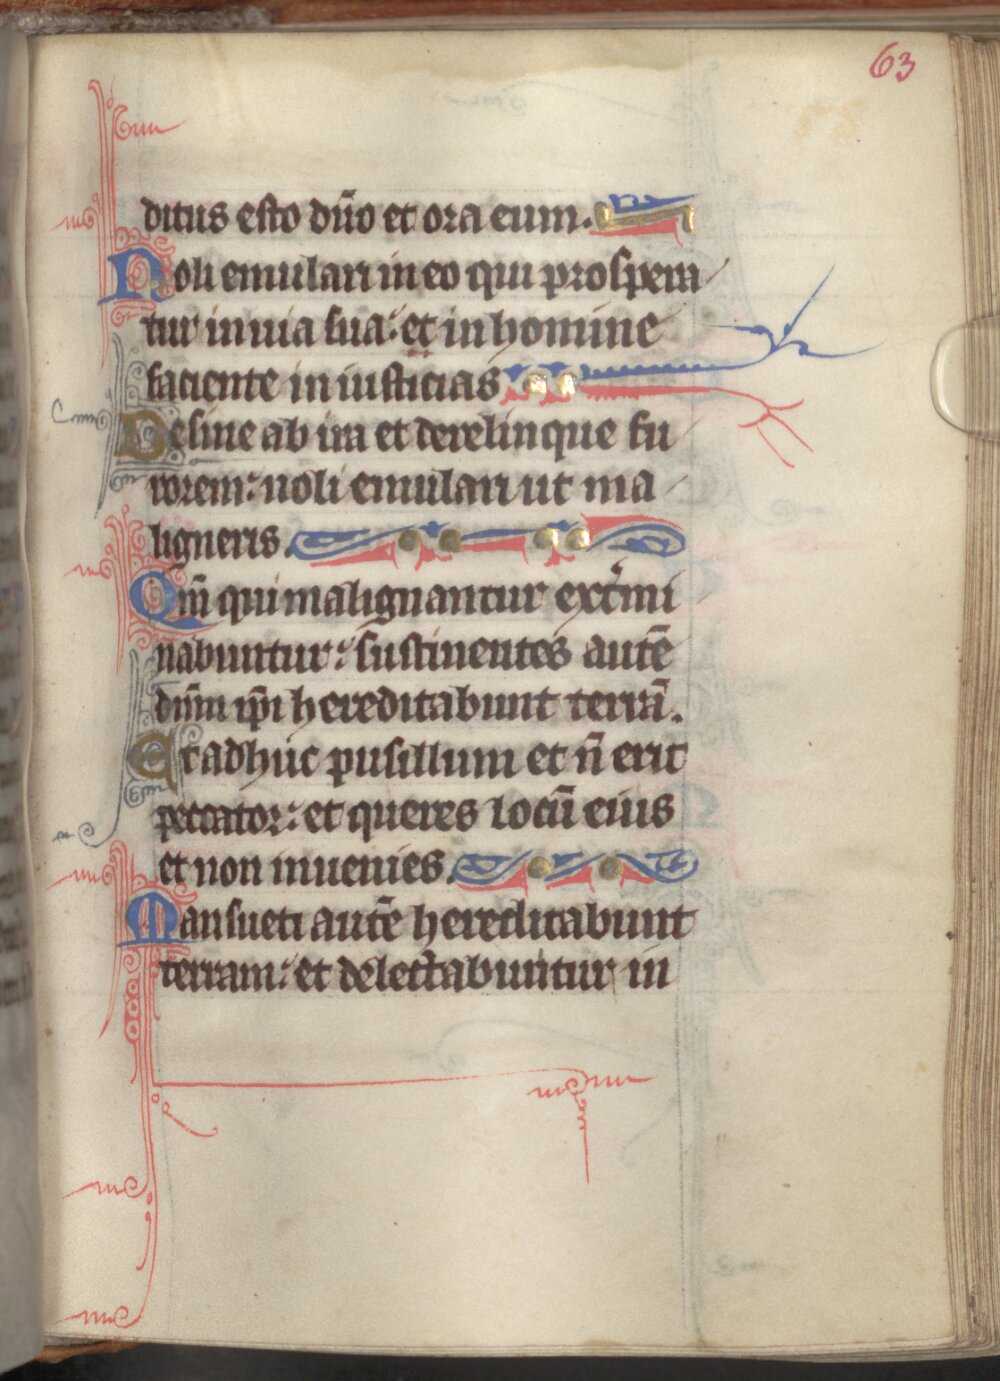 63
58
ditus esto dño et ora eum.
Noli emulari in eo qui prospera
tur in uia sua: et in homine
faciente in iusticias
Desine ab ira et derelinque fu
rorem: noli emulari ut ma
ligneris.
Qm̃ qui malignanturext̾mi
nabuntur: sustinentes autẽ
dñm ip̃i hereditabunt terrã.
Et adhuc pusillum et ñ erit
peccator: et queres locũ eius
et non inuenies.
Mansueti autẽ hereditabunt
terram: et delectabuntur in